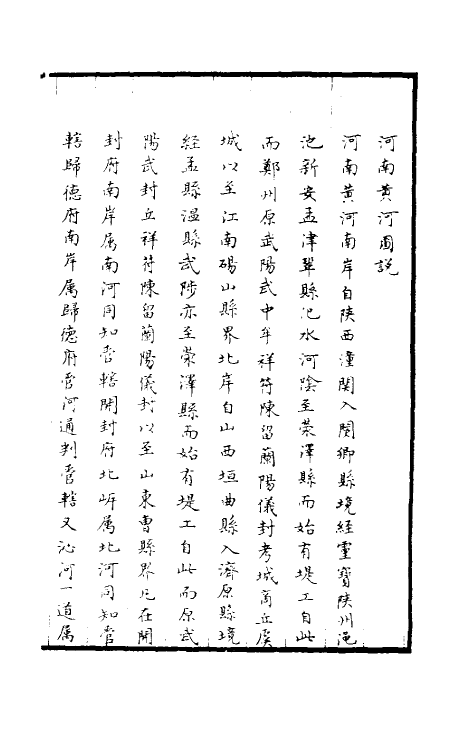 河南黃河圖說
河南黃河南岸自陝西潼関入閿鄉縣境經靈寳陝州澠
池新安孟津鞏縣汜水河陰至荣澤縣而始有堤工自此
而鄭州原武陽武中牟祥符陳留蘭陽儀封考城商丘虞
城以至江南碭山縣界北岸自山西垣曲縣入濟原縣境
經孟縣溫縣武陟亦至荣澤縣而始有堤工自此而原武
陽武封丘祥符陳留蘭陽儀封以至山東曹縣界凡在開
封府南岸属南河同知管轄開封府北岸属北河同知管
轄歸德府南岸属歸德府管河通判管轄又沁河一道属